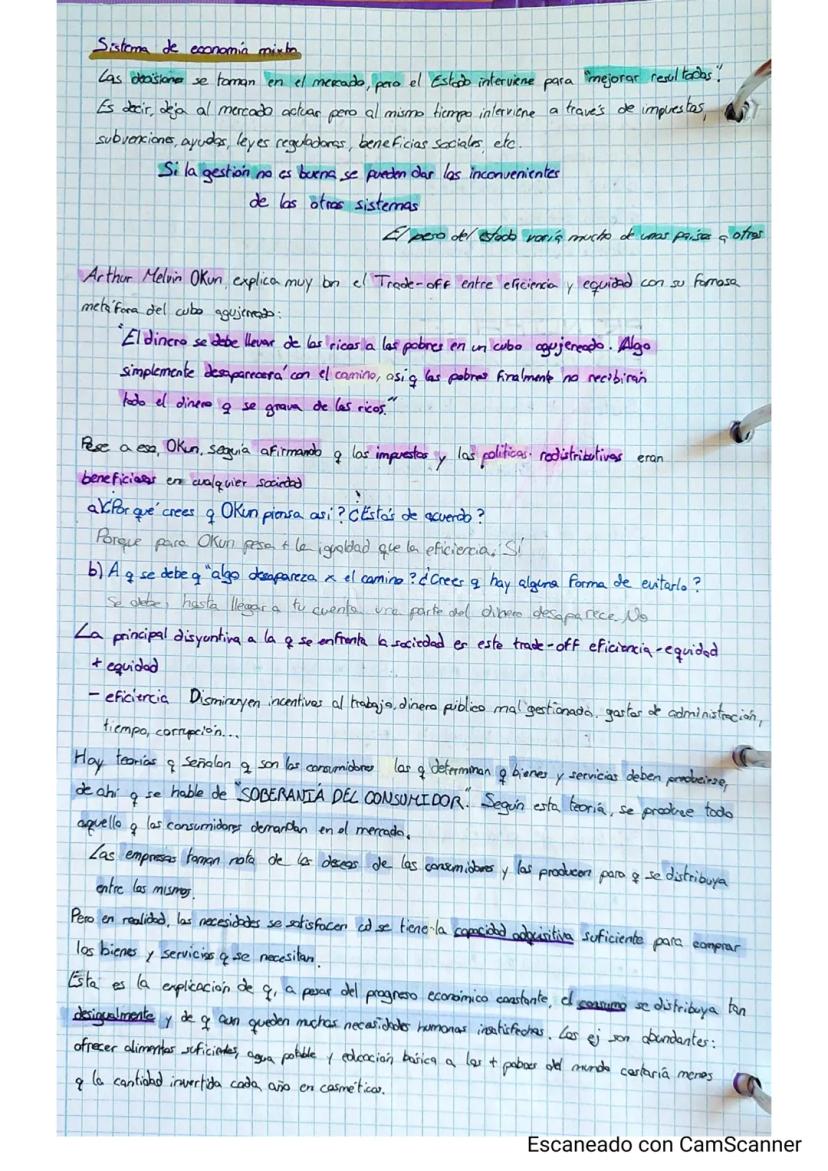 Sistema de economía mixta
Las decisiones se toman en el mercado, pero el Estado interviene para "mejorar resultados".
Es decir, deja al mercado actuar pero al mismo tiempo interviene a través de impuestos,
subvenciones, ayudas, leyes reguladoras, beneficios sociales, etc.
Si la gestión no es buena se pueden dar los inconvenientes
de los otros sistemas
El peso del estado varía mucho de unos países a otros
Arthur Melvin Okun, explica muy bn el Trade-off entre eficiencia y equidad con su famosa
metáfora del cubo agujereado:
"El dinero se debe llevar de los ricos a los pobres en un cubo agujereado. Algo
simplemente desaparecerá con el camino, así q los pobres finalmente no recibirán
todo el dinero q se grava de los ricos."
Pese a eso, Okun, seguía afirmando q los impuestos y las políticas redistributivas eran
beneficiosos en cualquier sociedad
a) ¿Por qué crees q Okun piensa así? ¿Estás de acuerdo?
Porque para Okun pesa + la igualdad que la eficiencia. Sí
b) A q se debe q "algo desaparezca x el camino? ¿Crees q hay alguna forma de evitarlo?
Se debe, hasta llegar a tu cuenta una parte del dinero desaparece. No
La principal disyuntiva a la q se enfrenta la sociedad es este trade-off eficiencia-equidad
+ equidad
- eficiencia Disminuyen incentivos al trabajo, dinero público mal gestionado, gastos de administración,
tiempo, corrupción...
Hay teorías q señalan q son los consumidores los q determinan q bienes y servicios deben producirse,
de ahí q se hable de "SOBERANÍA DEL CONSUMIDOR". Según esta teoría, se produce todo
aquello q los consumidores demandan en el mercado.
Las empresas toman nota de los deseos de los consumidores y los producen para q se distribuya
entre los mismos.
Pero en realidad, las necesidades se satisfacen cd se tiene la capacidad adquisitiva suficiente para comprar
los bienes y servicios q se necesitan.
Esta es la explicación de q, a pesar del progreso económico constante, el consumo se distribuya tan
desigualmente y de q aun queden muchas necesidades humanas insatisfechas. Los ej son abundantes:
ofrecer alimentos suficientes, agua potable y educación básica a los + pobres del mundo costaría menos
q la cantidad invertida cada año en cosméticos.
Escaneado con CamScanner